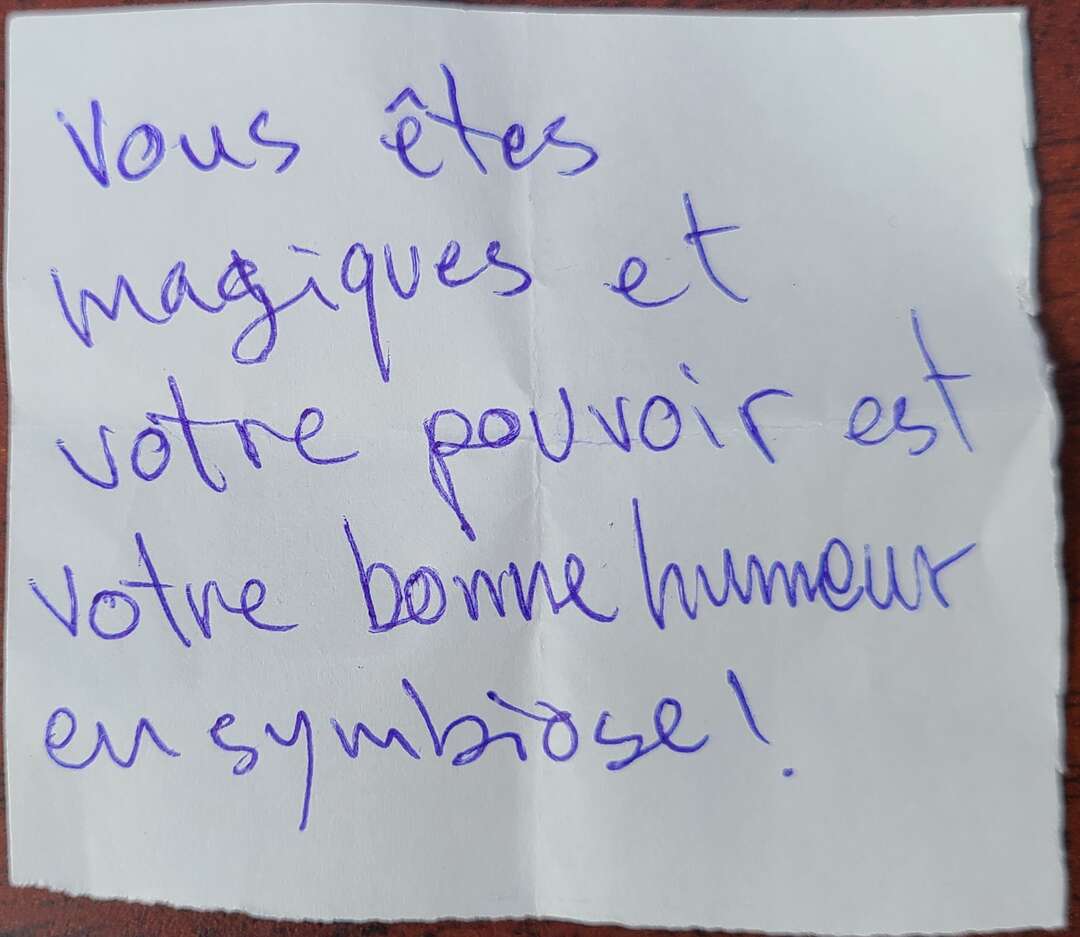 Vous êtes
magiques et
votre pouvoir est
votre bonne humeur
en symbiose!